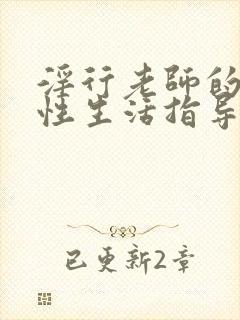 淫行老師的
性生活指导
已更新2章